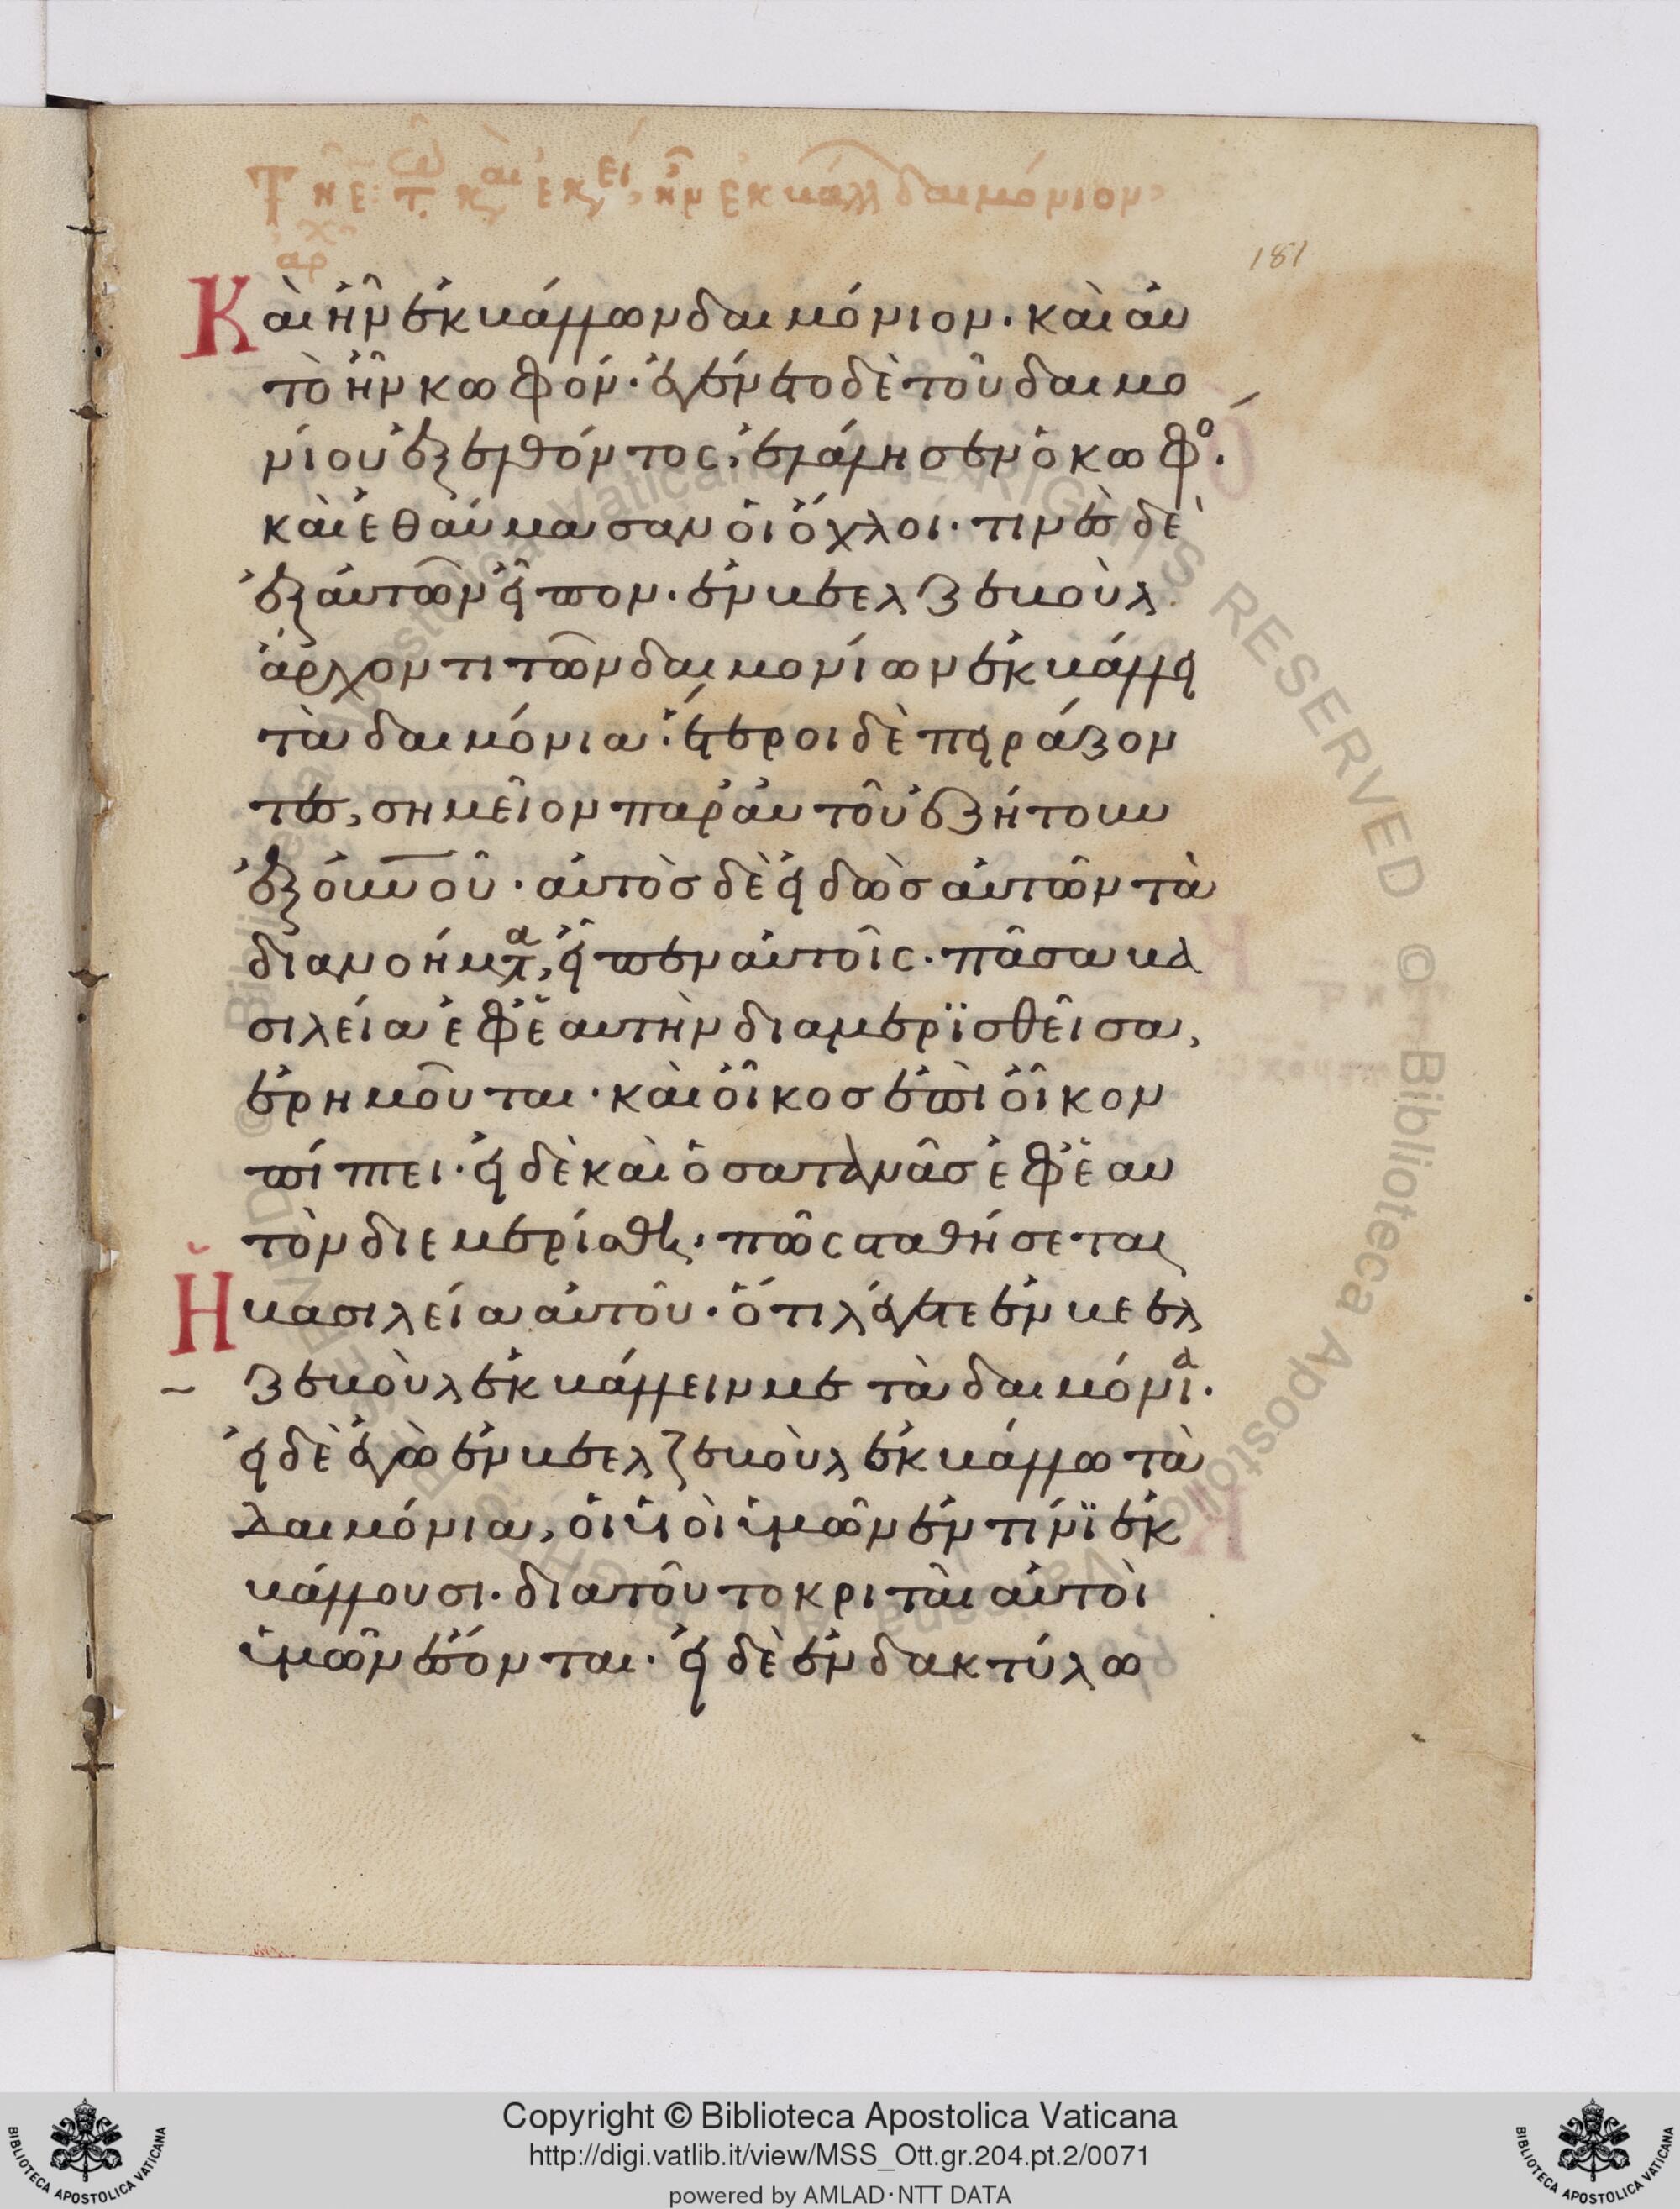 181
Καὶ ἦν ἐκβάλλων δαιμόνιον· καὶ αὐ
τὸ ἦν κωφόν· ἐγένετο δὲ τοῦ δαιμο
νίου ἐξελθόντος, ἐλάλησεν ὁ κωφο.
καὶ ἐθαύμασαν οἱ ὄχλοι· τινὲς δὲ
ἐξ αὐτῶν εἶπον· ἐν βεελζεβοὺλ
ἄρχοντι τῶν δαιμονίων ἐκβάλλει
τὰ δαιμόνια· ἕτεροι δὲ πειράζον
τες, σημεῖον παρ' αὐτοῦ ἐζήτουν
ἐξ οὐνοῦ· αὐτὸσ δὲ εἰδὼσ αὐτῶν τὰ
διανοήματα, εἶπεν αὐτοῖς· πᾶσα βα
σιλεία ἐφ' ἑαυτὴν διαμερϊσθεῖσα,
ἐρημοῦται· καὶ οἶκοσ ἐπὶ οἶκον
πίπτει· εἰ δὲ καὶ ὁ σατανᾶσ ἐφ' ἑαυ
τὸν διεμερίσθη, πῶς σταθήσεται
Ἡ βασιλεία αὐτοῦ· ὅτι λέγετε ἐν βεελ
ζεβοὺλ ἐκβάλλειν με τὰ δαιμόνια.
εἰ δὲ ἐγὼ ἐν βεελζεβοὺλ ἐκβάλλω τὰ
δαιμόνια, οἱ υἱοὶ ὑμῶν ἐν τίνϊ ἐκ
βάλλουσι· διατοῦτο κριταὶ αὐτοὶ
ὑμῶν ἔσονται· εἰ δὲ ἐν δακτύλω
Copyright © Biblioteca Apostolica Vaticana
http://digi.vatlib.it/view/MSS_Ott.gr.204.pt.2/0071
powered by AMLAD·NTT DATA
BIBLIOTECA APOSTOLICA VATICANA
BIBLIOTECA APOSTOLICA VATICANA